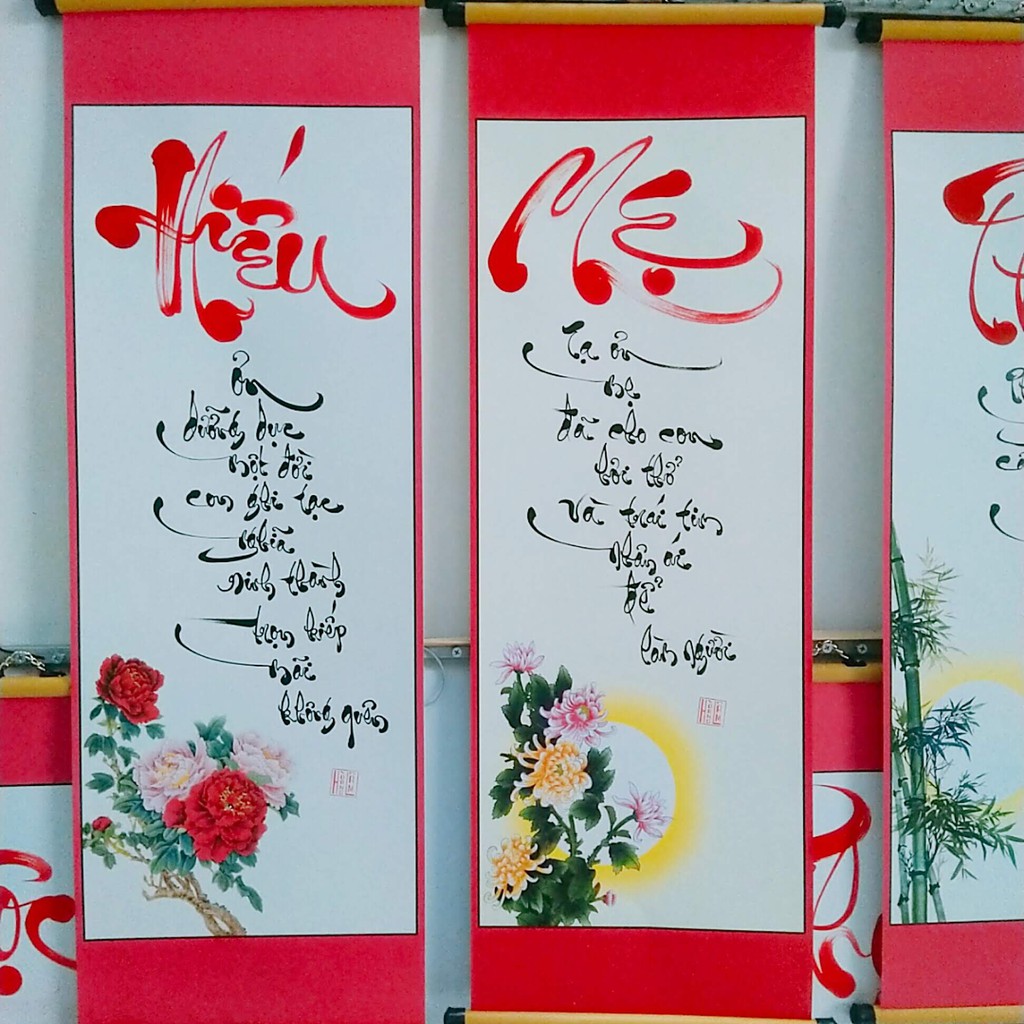 Hiếu
Ơn
dưỡng dục
một đời
con ghi tạc
nghĩa
sinh thành
trọn kiếp
mãi
không quên
Mẹ
Tạ ơn
mẹ
đã cho con
hơi thở
Và trái tim
nhân ái
để
làm người